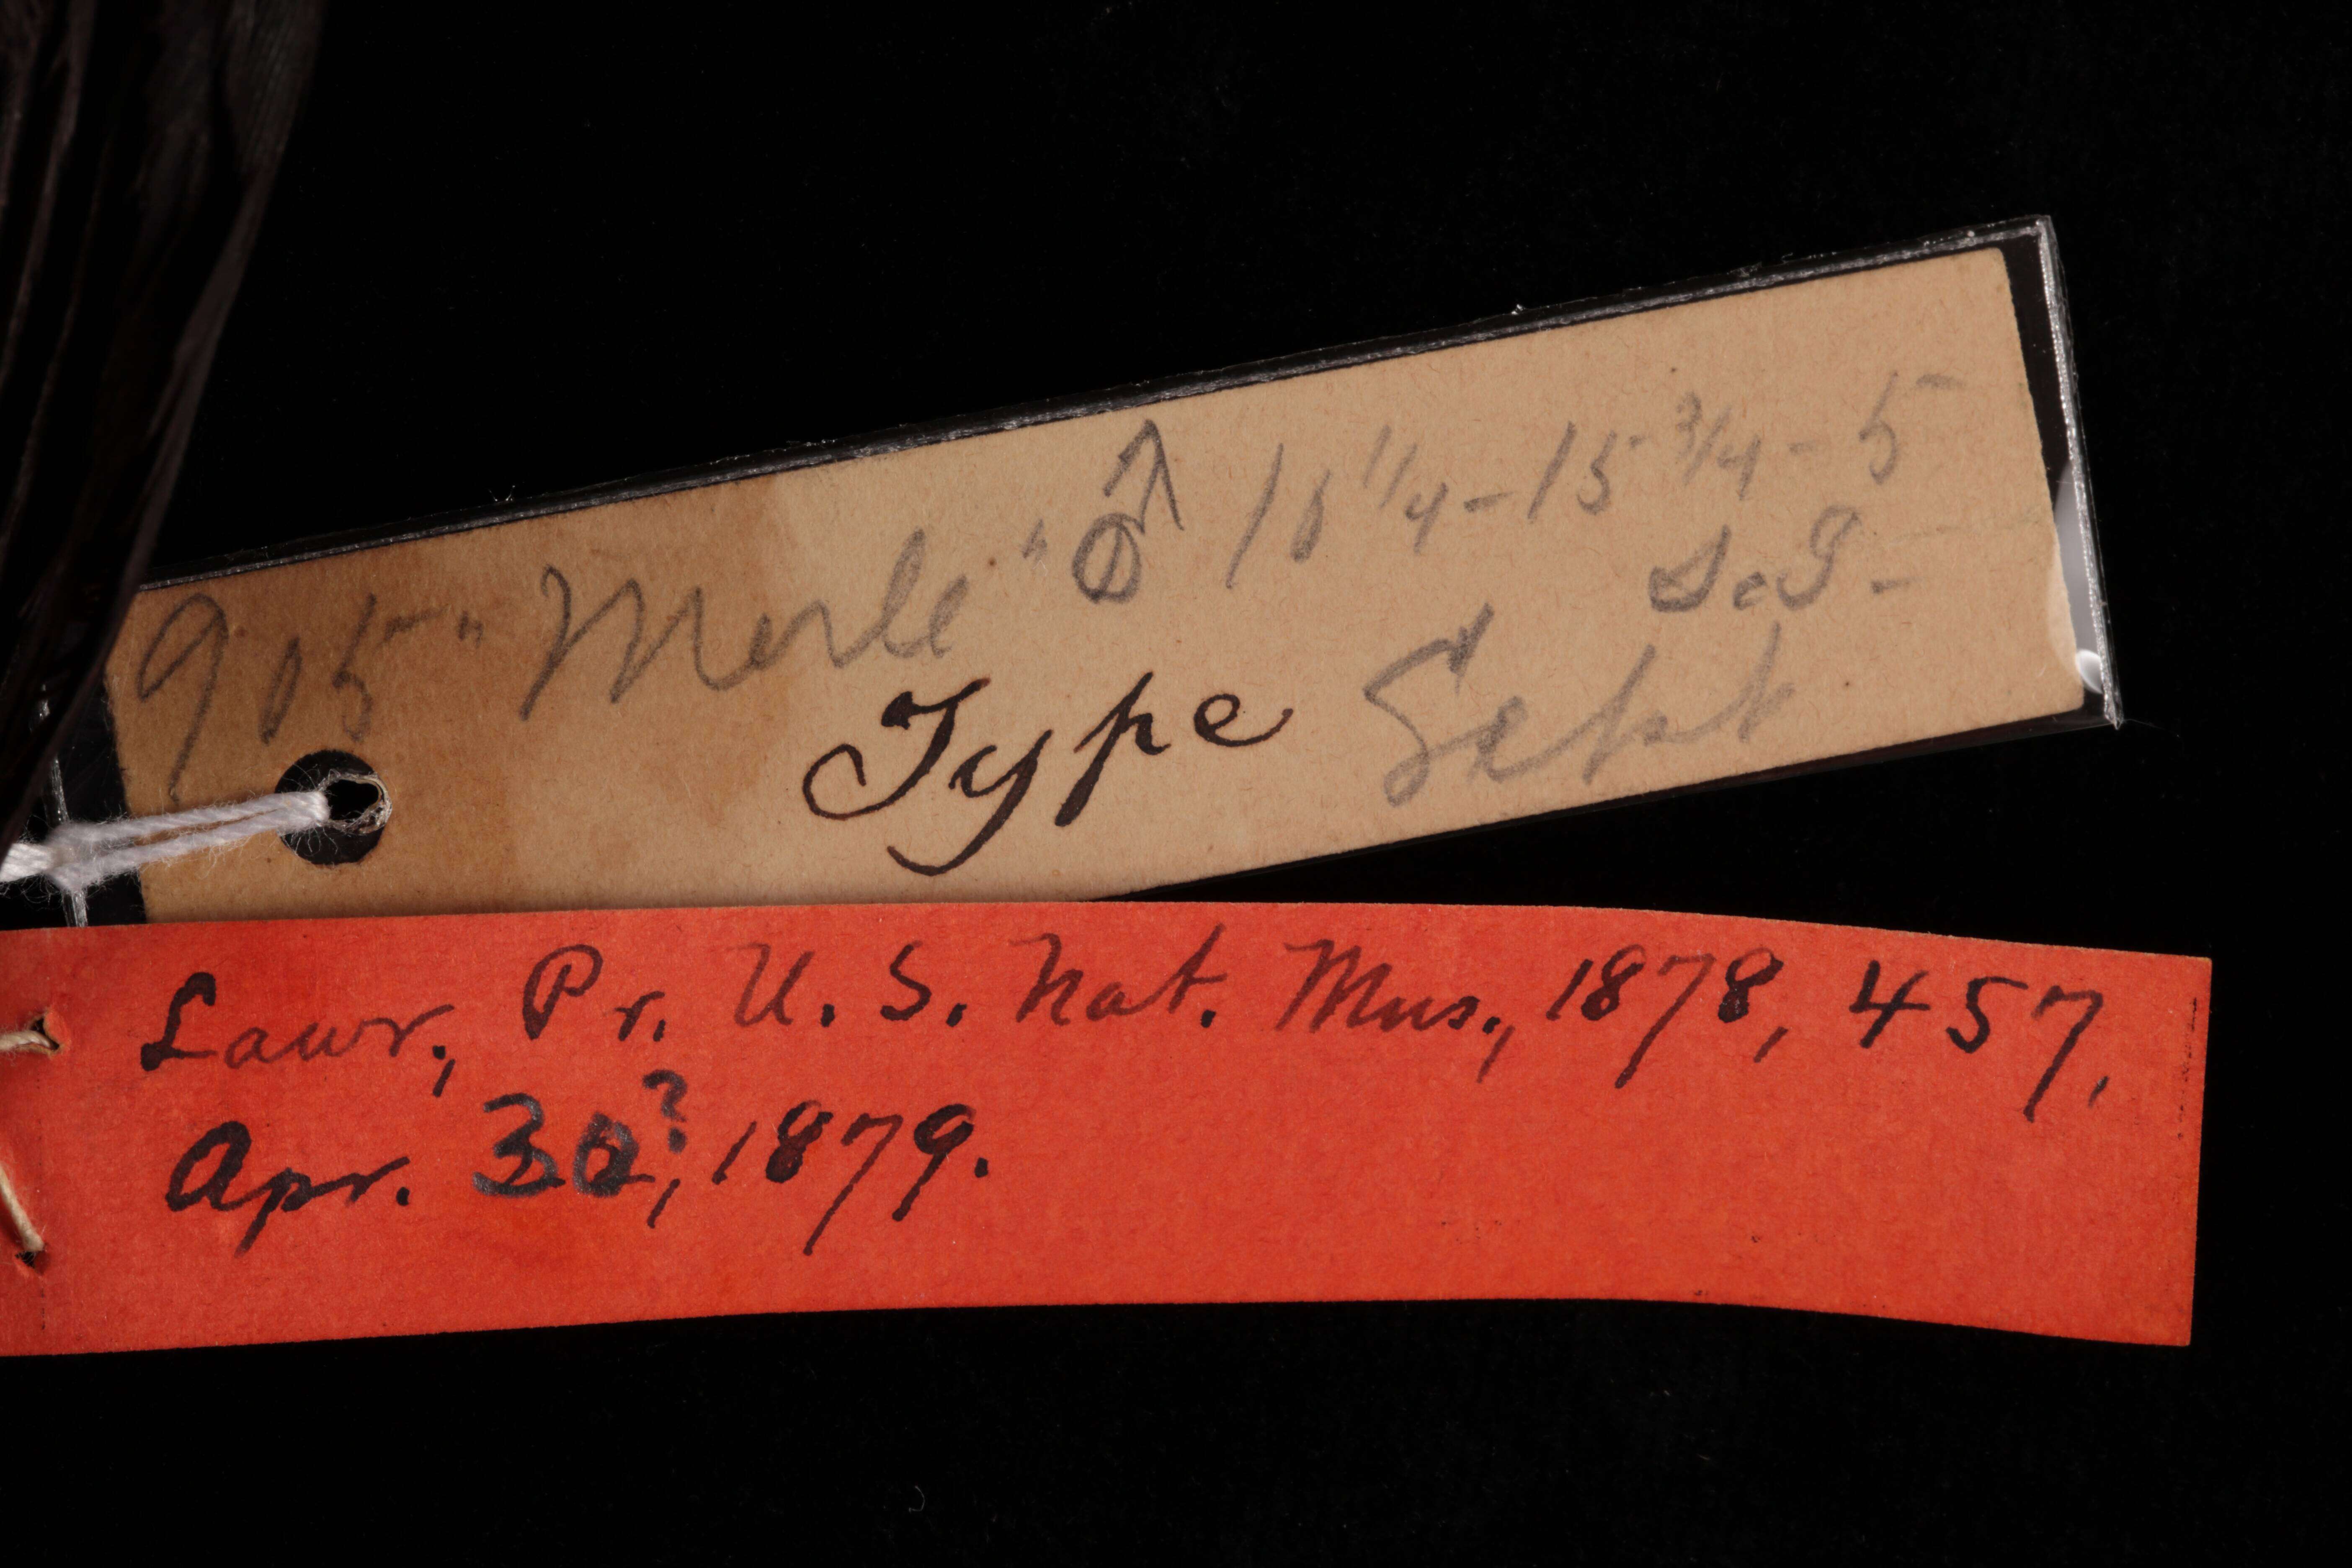 905 "Merle" ♂ 11 1/4 - 15 3/4 - 5
Type Sept
Lawr., Pr. U. S. Nat. Mus., 1878, 457,
Apr. 30?, 1879.